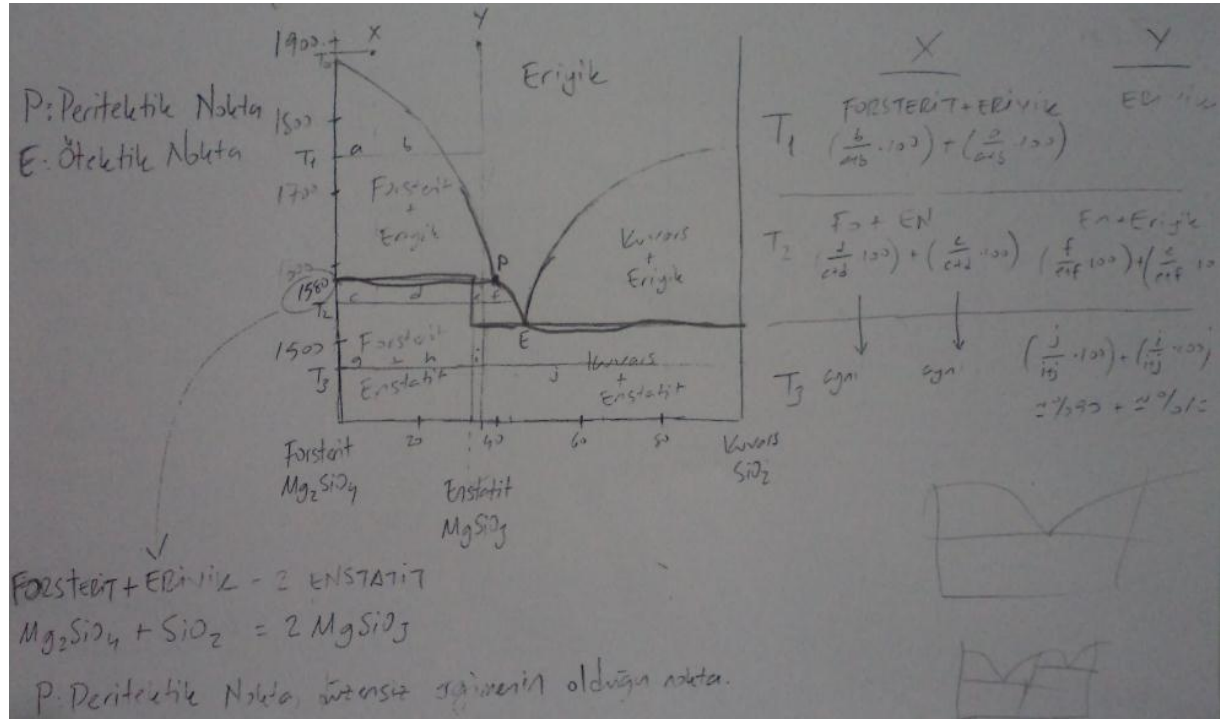 P: Peritektik Nokta
E: Ötektik Nokta
1900
T₀
X
Y
Eriyik
1800
T₁
a
b
1700
Forsterit
+
Eriyik
P
Kuvars
+
Eriyik
1600
1580
T₂
c
d
e
f
E
1500
Forsterit
g
h
i
Enstatit
T₃
j
Kuvars
+
Enstatit
20
40
60
80
Forsterit
Mg₂SiO₄
Enstatit
MgSiO₃
Kuvars
SiO₂
X
Y
T₁
FORSTERİT + ERİYİK
(b/a+b · 100) + (a/a+b · 100)
T₂
Fo + EN
(d/c+d · 100) + (c/c+d · 100)
En + Eriyik
(f/e+f · 100) + (e/e+f · 10
T₃
aynı
aynı
(j/i+j · 100) + (i/i+j · 100)
FORSTERİT + ERİYİK = 2 ENSTATİT
Mg₂SiO₄ + SiO₂ = 2 MgSiO₃
P: Peritektik Nokta, olduğu nokta.